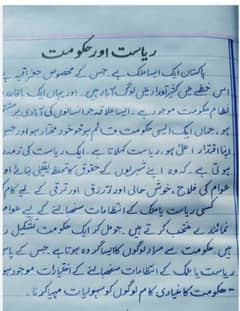 ریاست اور حکومت
پاکستان ایک ایسا ملک ہے جس کے مخصوص جغرافیہ ہے
اس خطے میں کثیر تعداد میں لوگ آباد ہیں۔ اور یہاں ایک باقاعدہ
نظام حکومت موجود ہے۔ ایسا علاقہ جو انسانوں کی آبادی پر مشتمل
ہو، جہاں ایک ایسی حکومت قائم ہو جو خود مختار ہو اور جس
اپنا اقتدار اعلیٰ ہو، ریاست کہلاتا ہے۔ ایک ریاست کی ذمہ
ہوتی ہے۔ کہ وہ اپنے شہریوں کے حقوق کا تحفظ یقینی بنائے اور
عوام کی فلاح، خوش حالی اور ترقی کے لیے کام
کسی ریاست یا ملک کے انتظامات سنبھالنے کے لیے عوام
نمائندے منتخب کرتے ہیں۔ جو مل کر ایک حکومت تشکیل
ہیں۔ حکومت سے مراد لوگوں کا ایسا گروہ ہوتا ہے۔ جس کے پاس
ریاست یا ملک کے انتظامات سنبھالنے کے اختیارات موجود ہو
حکومت کا بنیادی کام لوگوں کو سہولیات مہیا کرنا۔